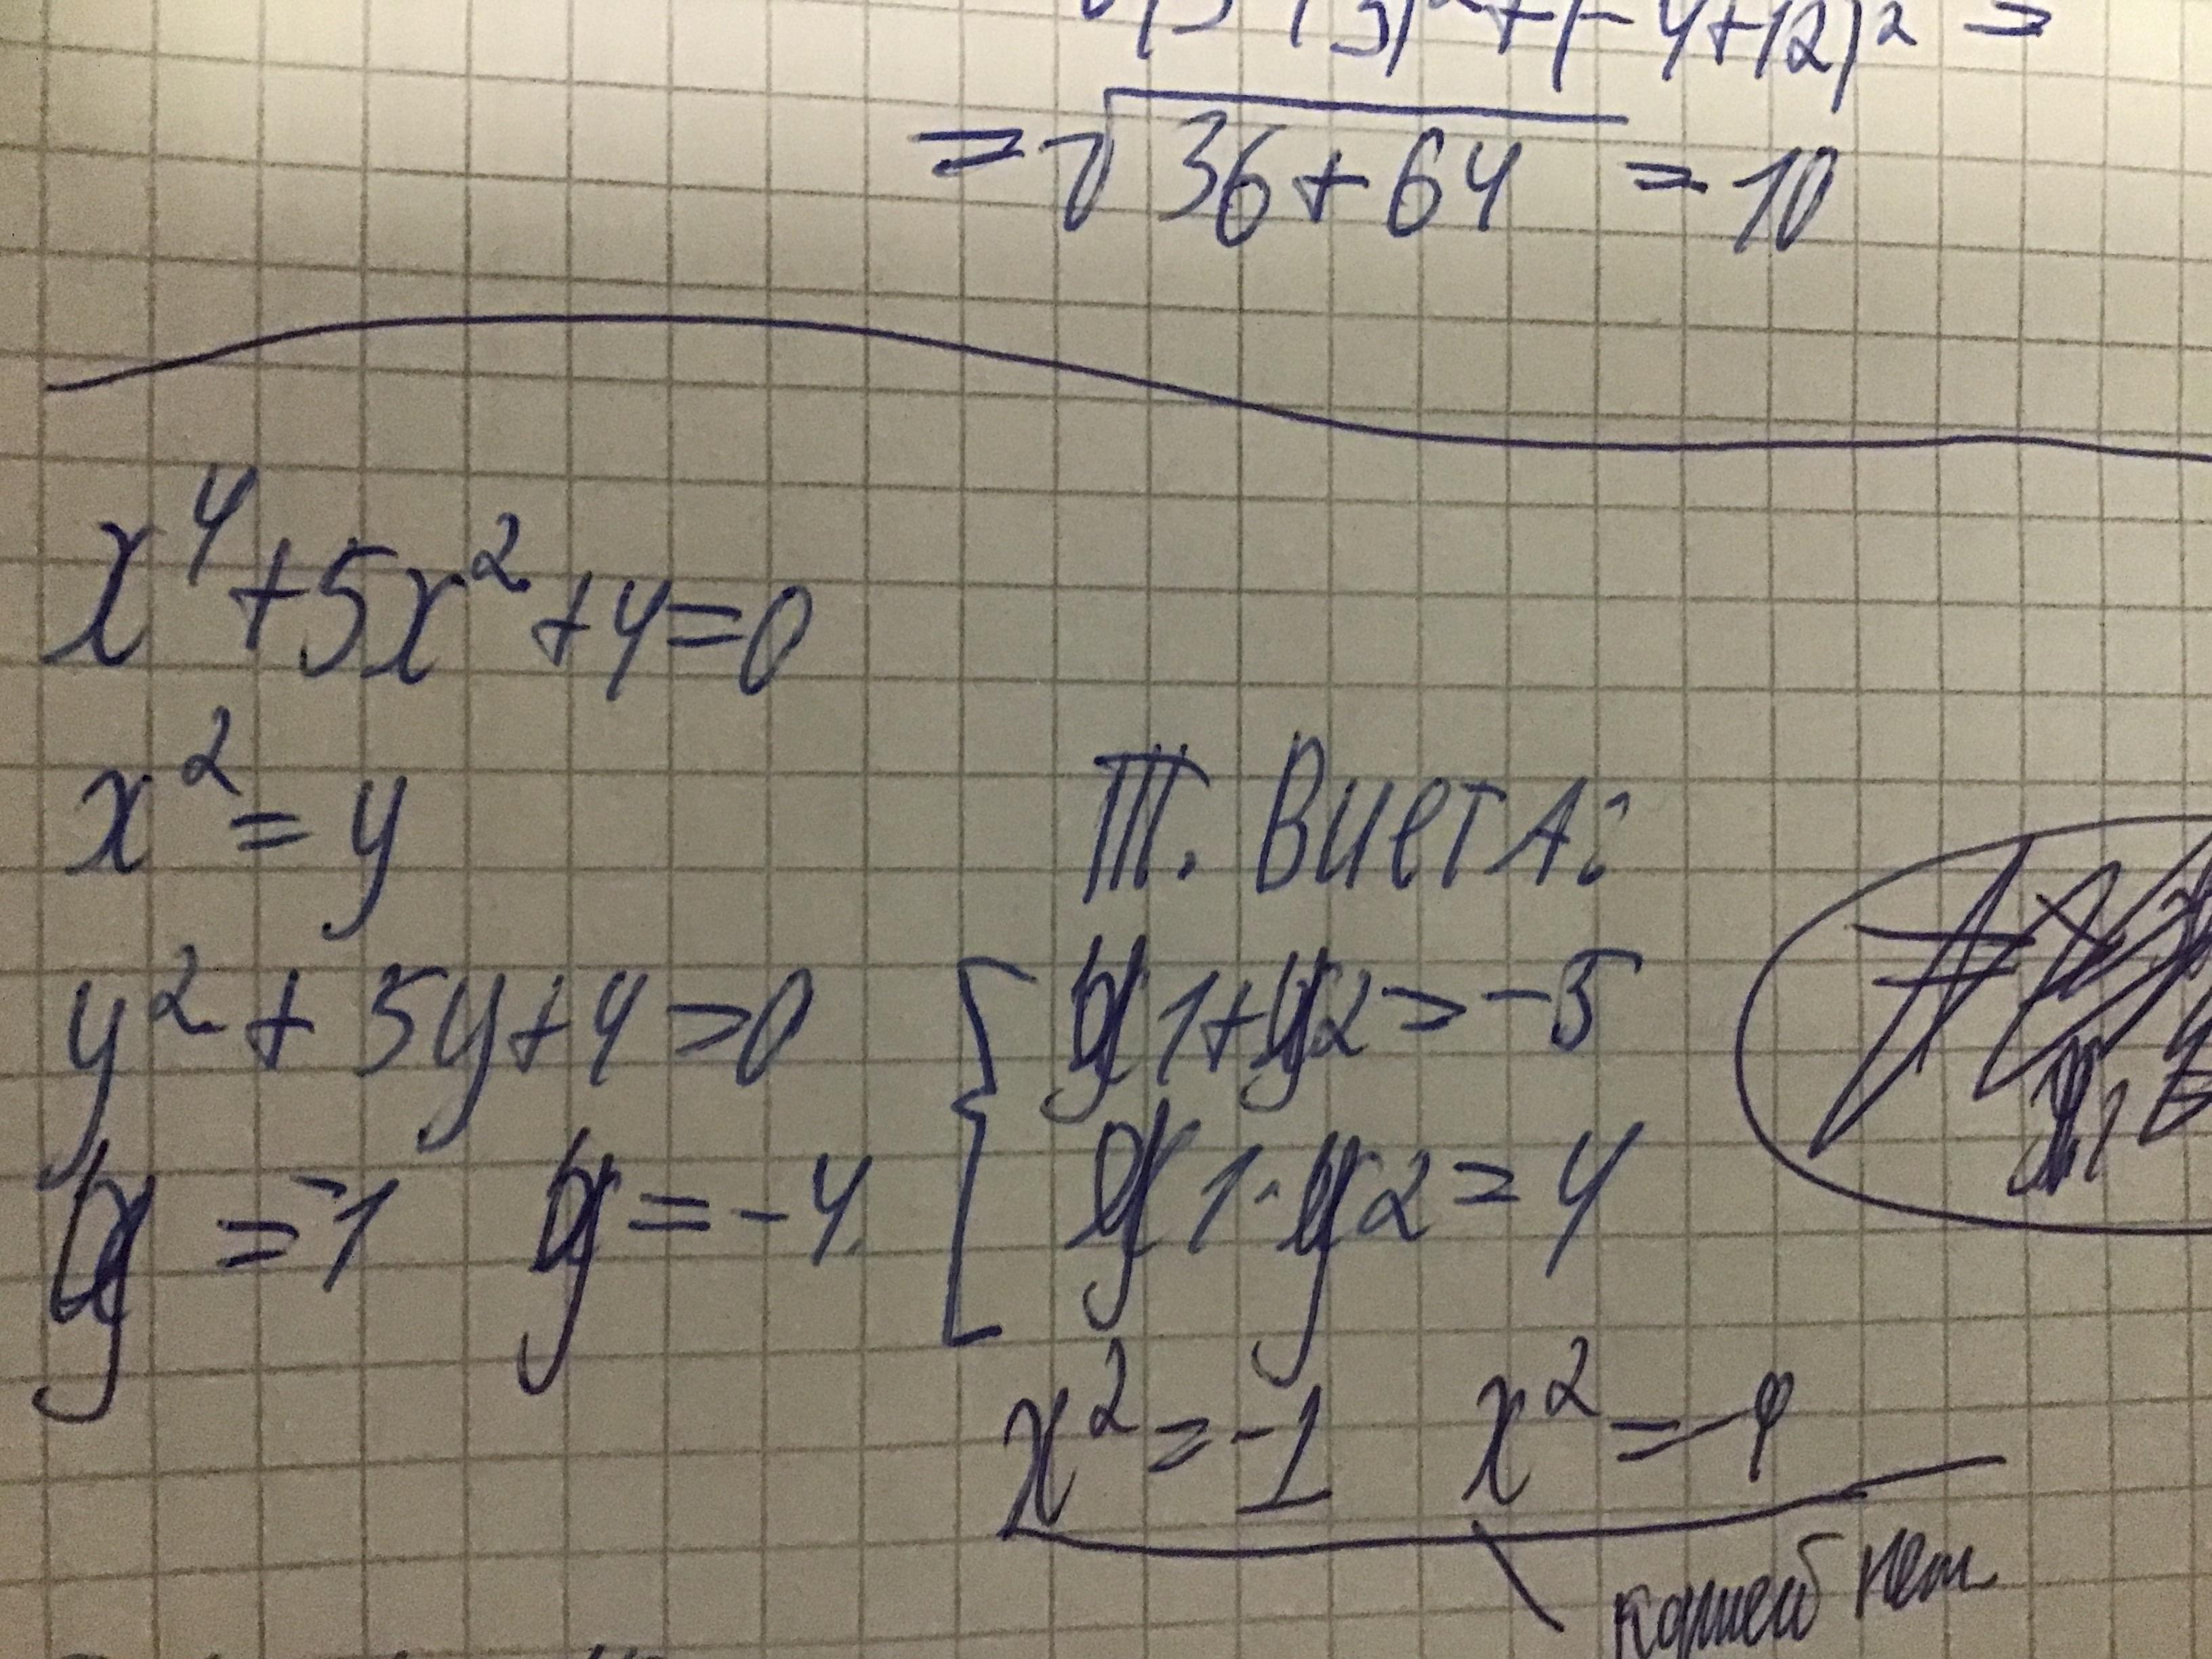 +(-4+12)² =
= √36+64 = 10
x⁴+5x²+4=0
x² = y
y² + 5y+4=0
y = -1 y = -4
Т. Виета:
y1+y2=-5
y1·y2=4
x²=-1 x²=-4
корней нет